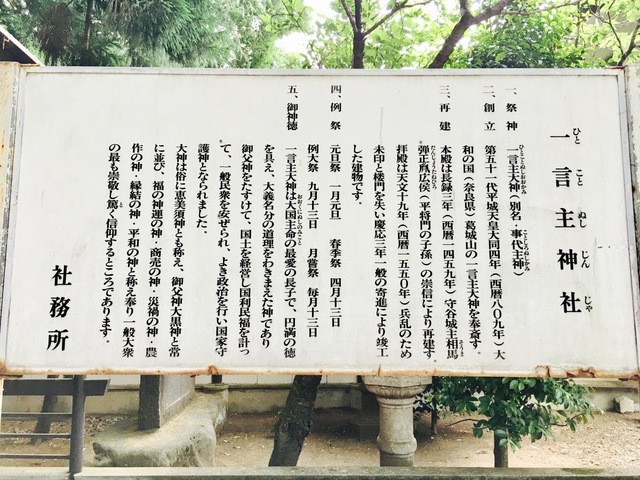 一言主神社
ひとことぬしじんじゃ
一、祭神　一言主大神（別名・事代主神）
ひとことぬしおおかみ
ことしろぬしのかみ
二、創立　第五十一代平城天皇大同四年（西暦八〇九年）大
和の国（奈良県）葛城山の一言主大神を奉斎す。
三、再建　本殿は長録三年（西暦一四五九年）守谷城主相馬
弾正胤広侯（平将門の子孫）の崇信により再建す。
拝殿は天文十九年（西暦一五五〇年）兵乱のため
未印と楼門を失い慶応三年一般の寄進により竣工
した建物です。
四、例祭　元旦祭　一月元旦　春季祭　四月十三日
例大祭　九月十三日　月嘗祭　毎月十三日
五、御神徳　一言主大神は大国主命の最愛の長子で、円満の徳
おおくにぬしのみこと
を具え、大義名分の道理をわきまえた神であり
御父神をたすけて、国土を経営し国利民福を計っ
て、一般民衆を安ぜられ、よき政治を行い国家守
護神となられました。
大神は俗に恵美須神とも称え、御父神大黒神と常
に並び、福の神運の神・商売の神・災禍の神・農
作の神・縁結の神・平和の神と称え奉り一般大衆
の最も崇敬し篤く信仰するところであります。
社務所